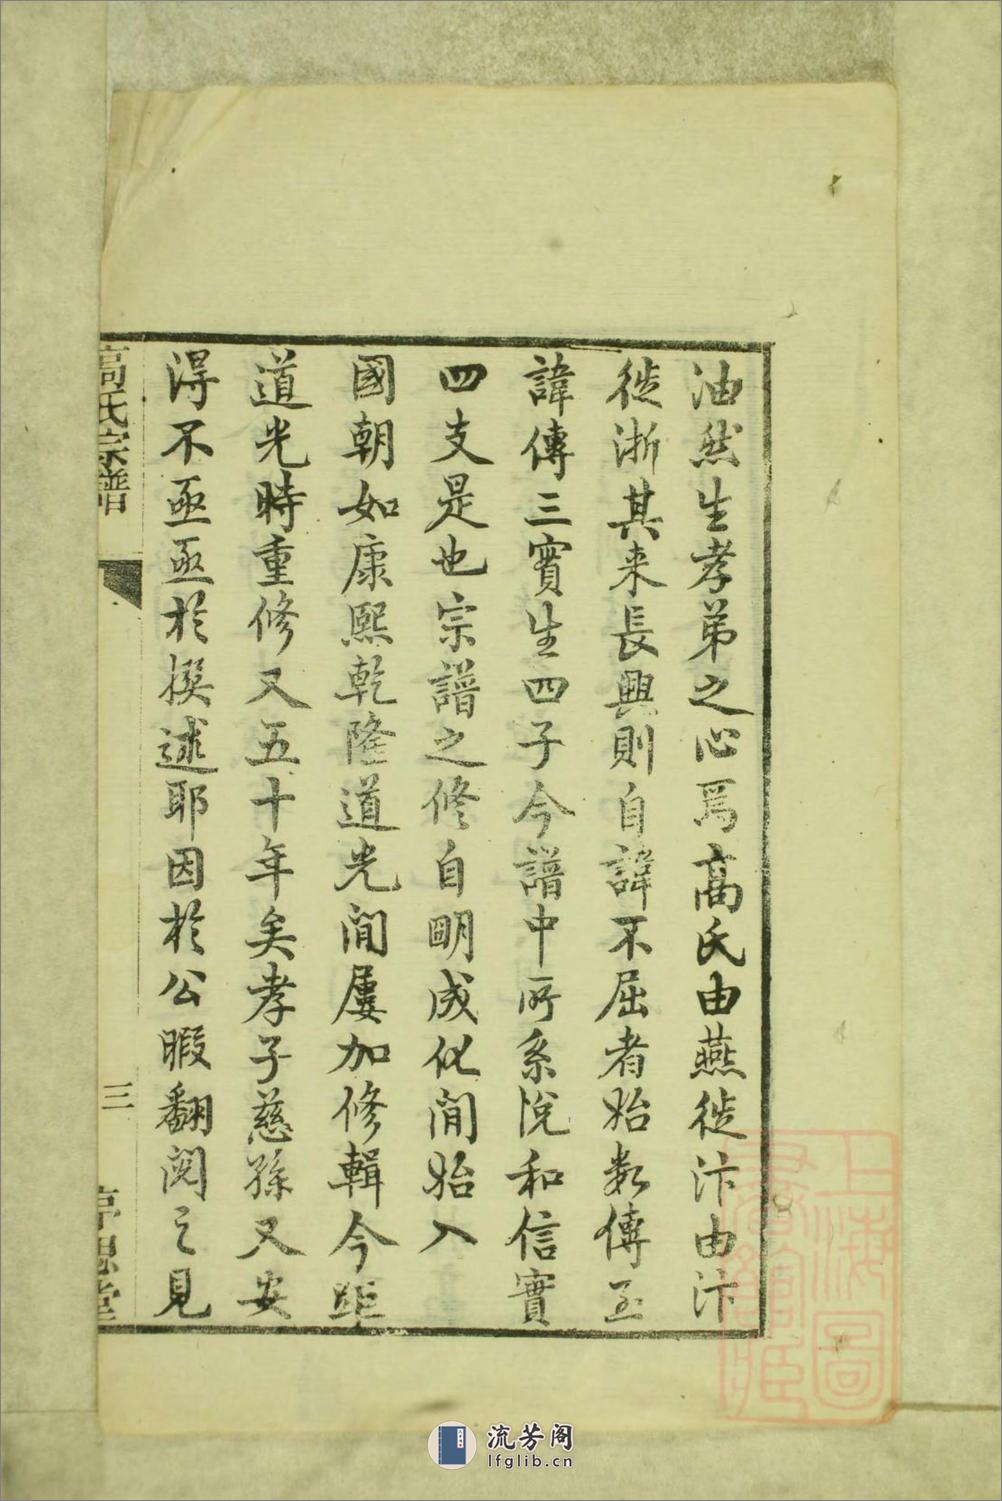 油然生孝弟之心焉高氏由燕徙汴由汴
徙浙其来長興則自諱不屈者始数傳至
諱傳三實生四子今譜中所系悅和信實
四支是也宗譜之修自明成化間始入
國朝如康熙乾隆道光間屢加修輯今距
道光時重修又五十年矣孝子慈孫又安
得不亟亟於撰述耶因於公暇翻阅之見
高氏宗譜
三
思堂
上海圖書館藏
流芳阁
lfglib.cn